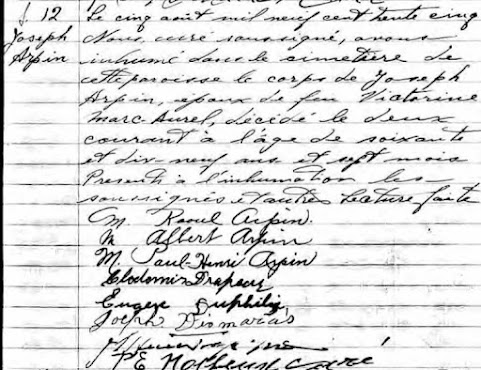 S. 12
Joseph
Arpin
Le cinq août mil neuf cent trente cinq
Nous, curé soussigné, avons
inhumé dans le cimetière de
cette paroisse le corps de Joseph
Arpin, époux de feu Victorine
Marc-Aurel, décidé le deux
courant à l'âge de soixante
et dix-neuf ans et sept mois
Présents à l'inhumation les
soussignés et autres Lecture faite
M. Raoul Arpin.
M Albert Arpin
M. Paul-Henri Arpin
Clodomir Drapeau
Eugene
Joseph Dismarais
P.E. curé